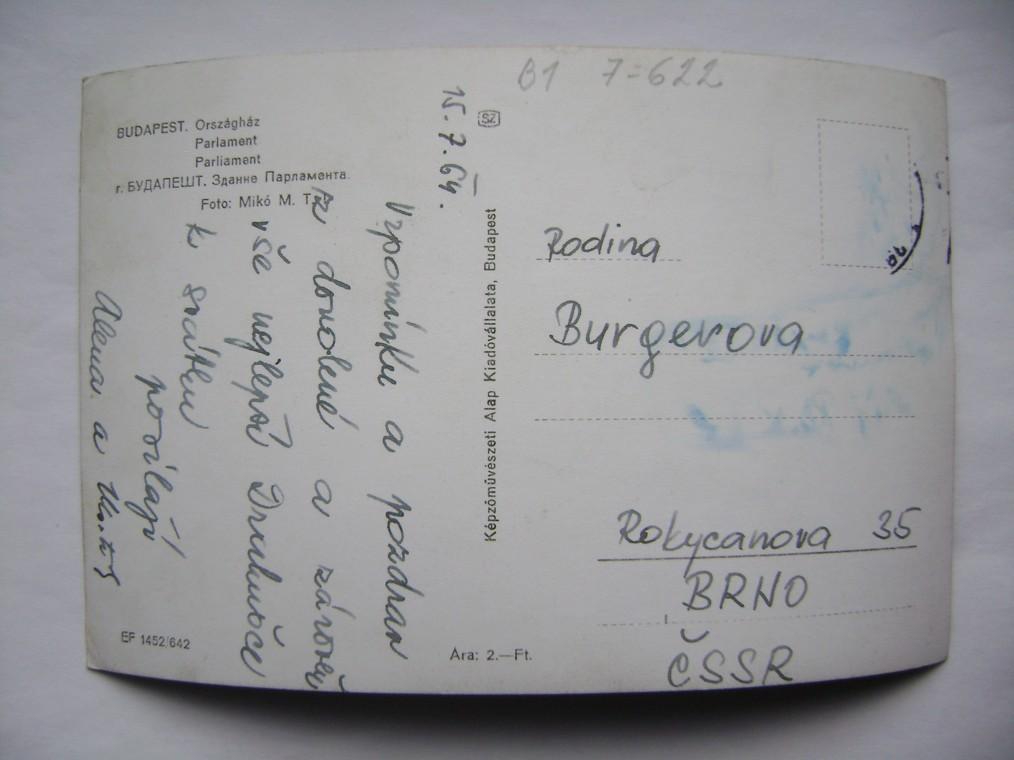 B1 7=622
BUDAPEST. Országház
Parlament
Parliament
г. БУДАПЕШТ. Здание Парламента.
Foto: Mikó M. T.
15. 7. 64.
Vzpomínku a pozdrav
z dovolené a zároveň
vše nejlepší Drahušce
k svátku
posílají
Alena a
EF 1452/642
Ára: 2.—Ft.
SZ
Képzőművészeti Alap Kiadóvállalata, Budapest
Rodina
Burgerova
Rokycanova 35
BRNO
ČSSR